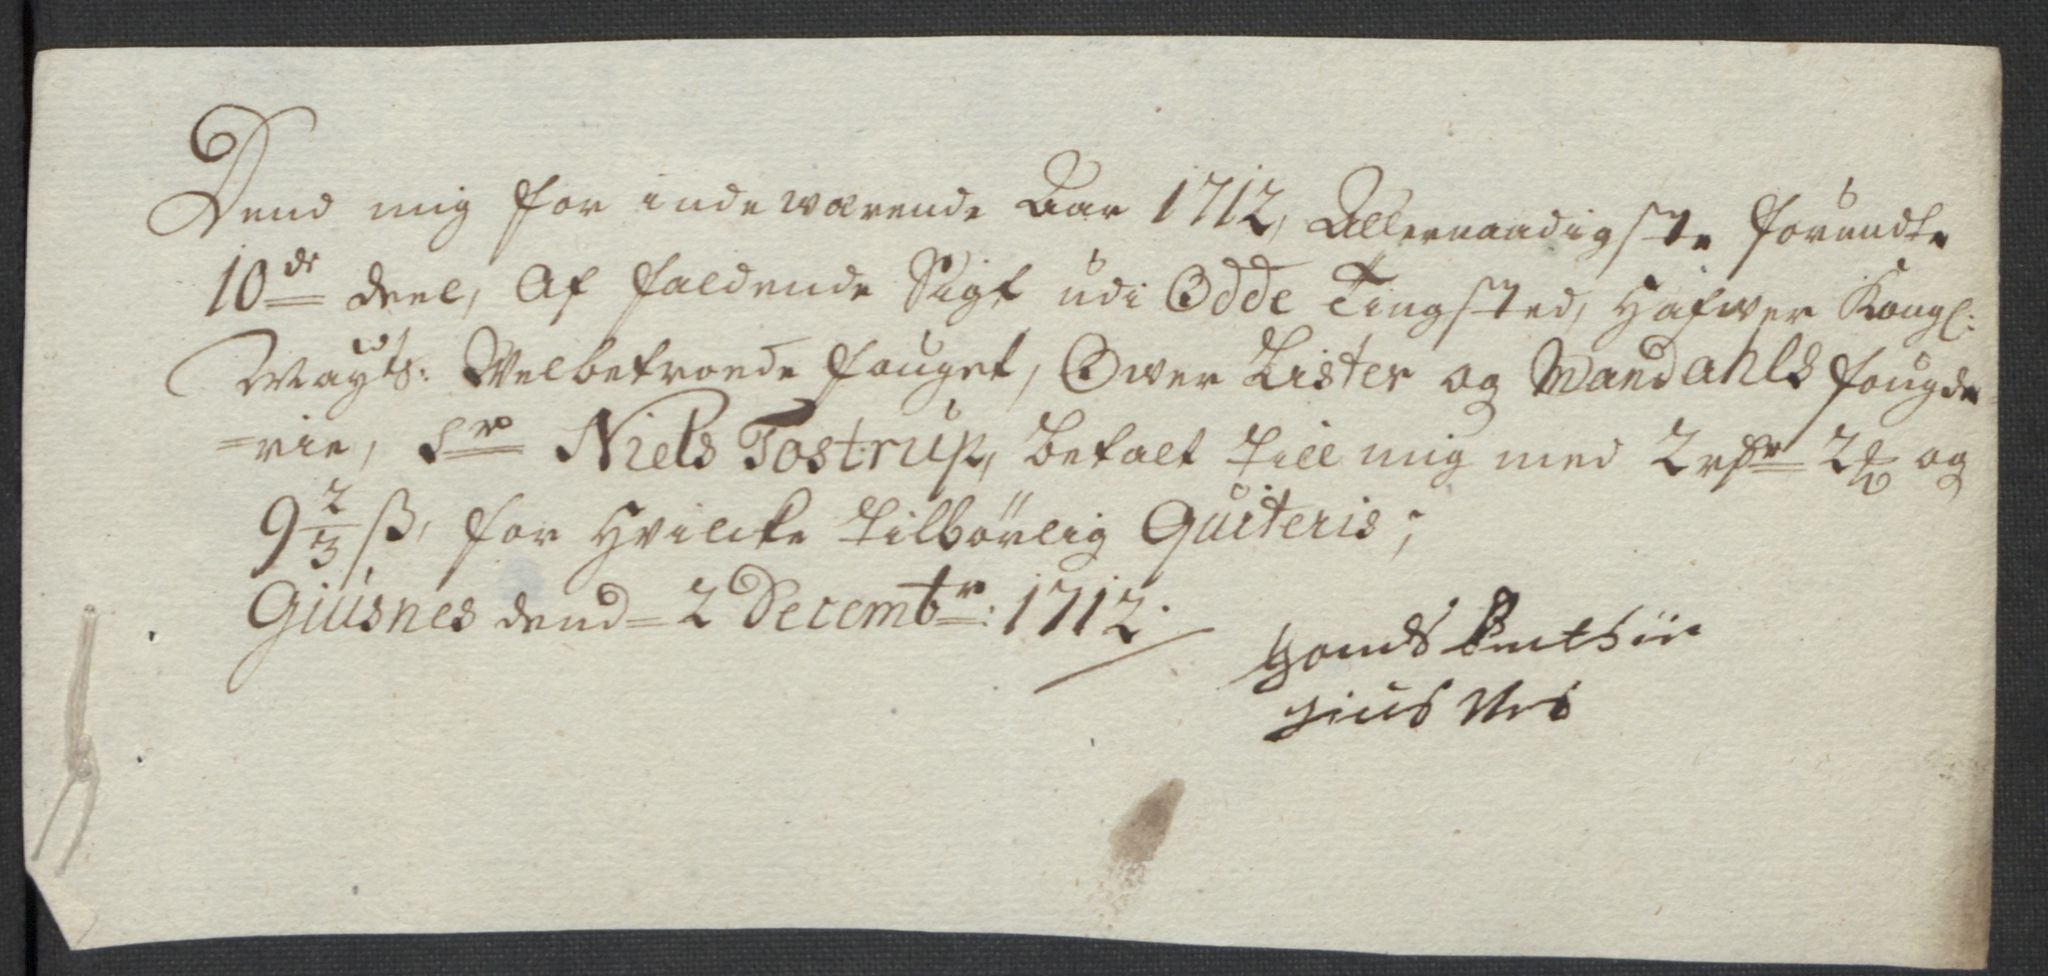 Dend mig for indeværende Aar 1712, Allernaadigste forundte
10de deel, Af faldende Sigt udi Odde Tingsted, Hafwer Kongl:
Mayts: Welbetroede fouget, Ower Lister og Mandahls fougde=
=rie, Sr Niels Tostrup, betalt till mig med 2 rdr 2 ℔ og
9 2/3 ß, for Hvilcke tilbörlig Quiteris;
Giusnes dend 2 Decembr: 1712.

gius Nes